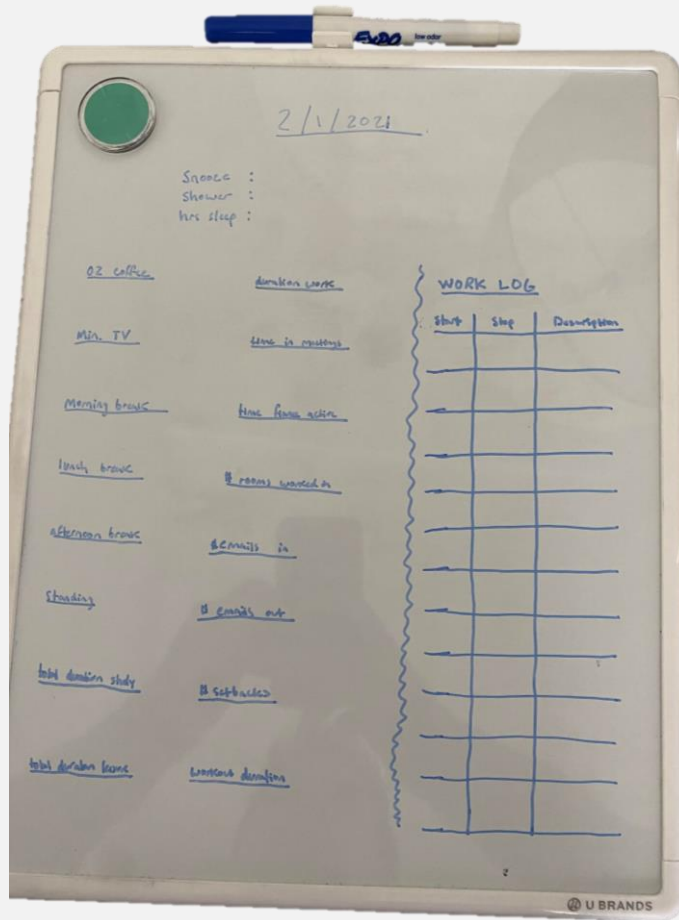 EXPO low odor
2/1/2021
Snooze :
Shower :
hrs sleep :
oz coffee
Min. TV
Morning break
lunch break
afternoon break
Standing
total duration study
total duration
duration work
time in meetings
time Teams active
# rooms worked in
# emails in
# emails out
# setbacks
workout duration
WORK LOG
Start Stop Description
U BRANDS